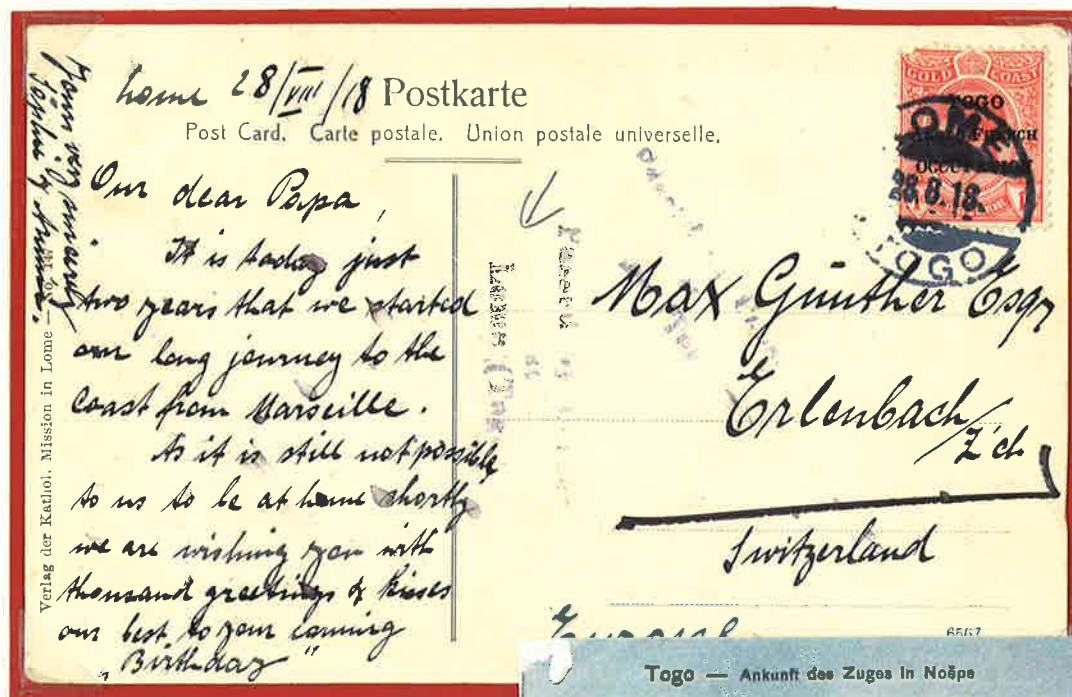 Lome 28/VIII/18
Postkarte
Post Card. Carte postale. Union postale universelle.
Our dear Papa,
It is today just
two years that we started
our long journey to the
Coast from Marseille.
As it is still not possible
to us to be at home shortly
we are wishing you with
thousand greetings & kisses
our best to your coming
"Birthday"
Verlag der Kathol. Mission in Lome
GOLD COAST
TOGO
OCCUPATION
LOME
28.8.18.
TOGO
Max Günther Esqr
Erlenbach
/Z'ch
Switzerland
Europe
6567
Togo — Ankunft des Zuges in Noëpe